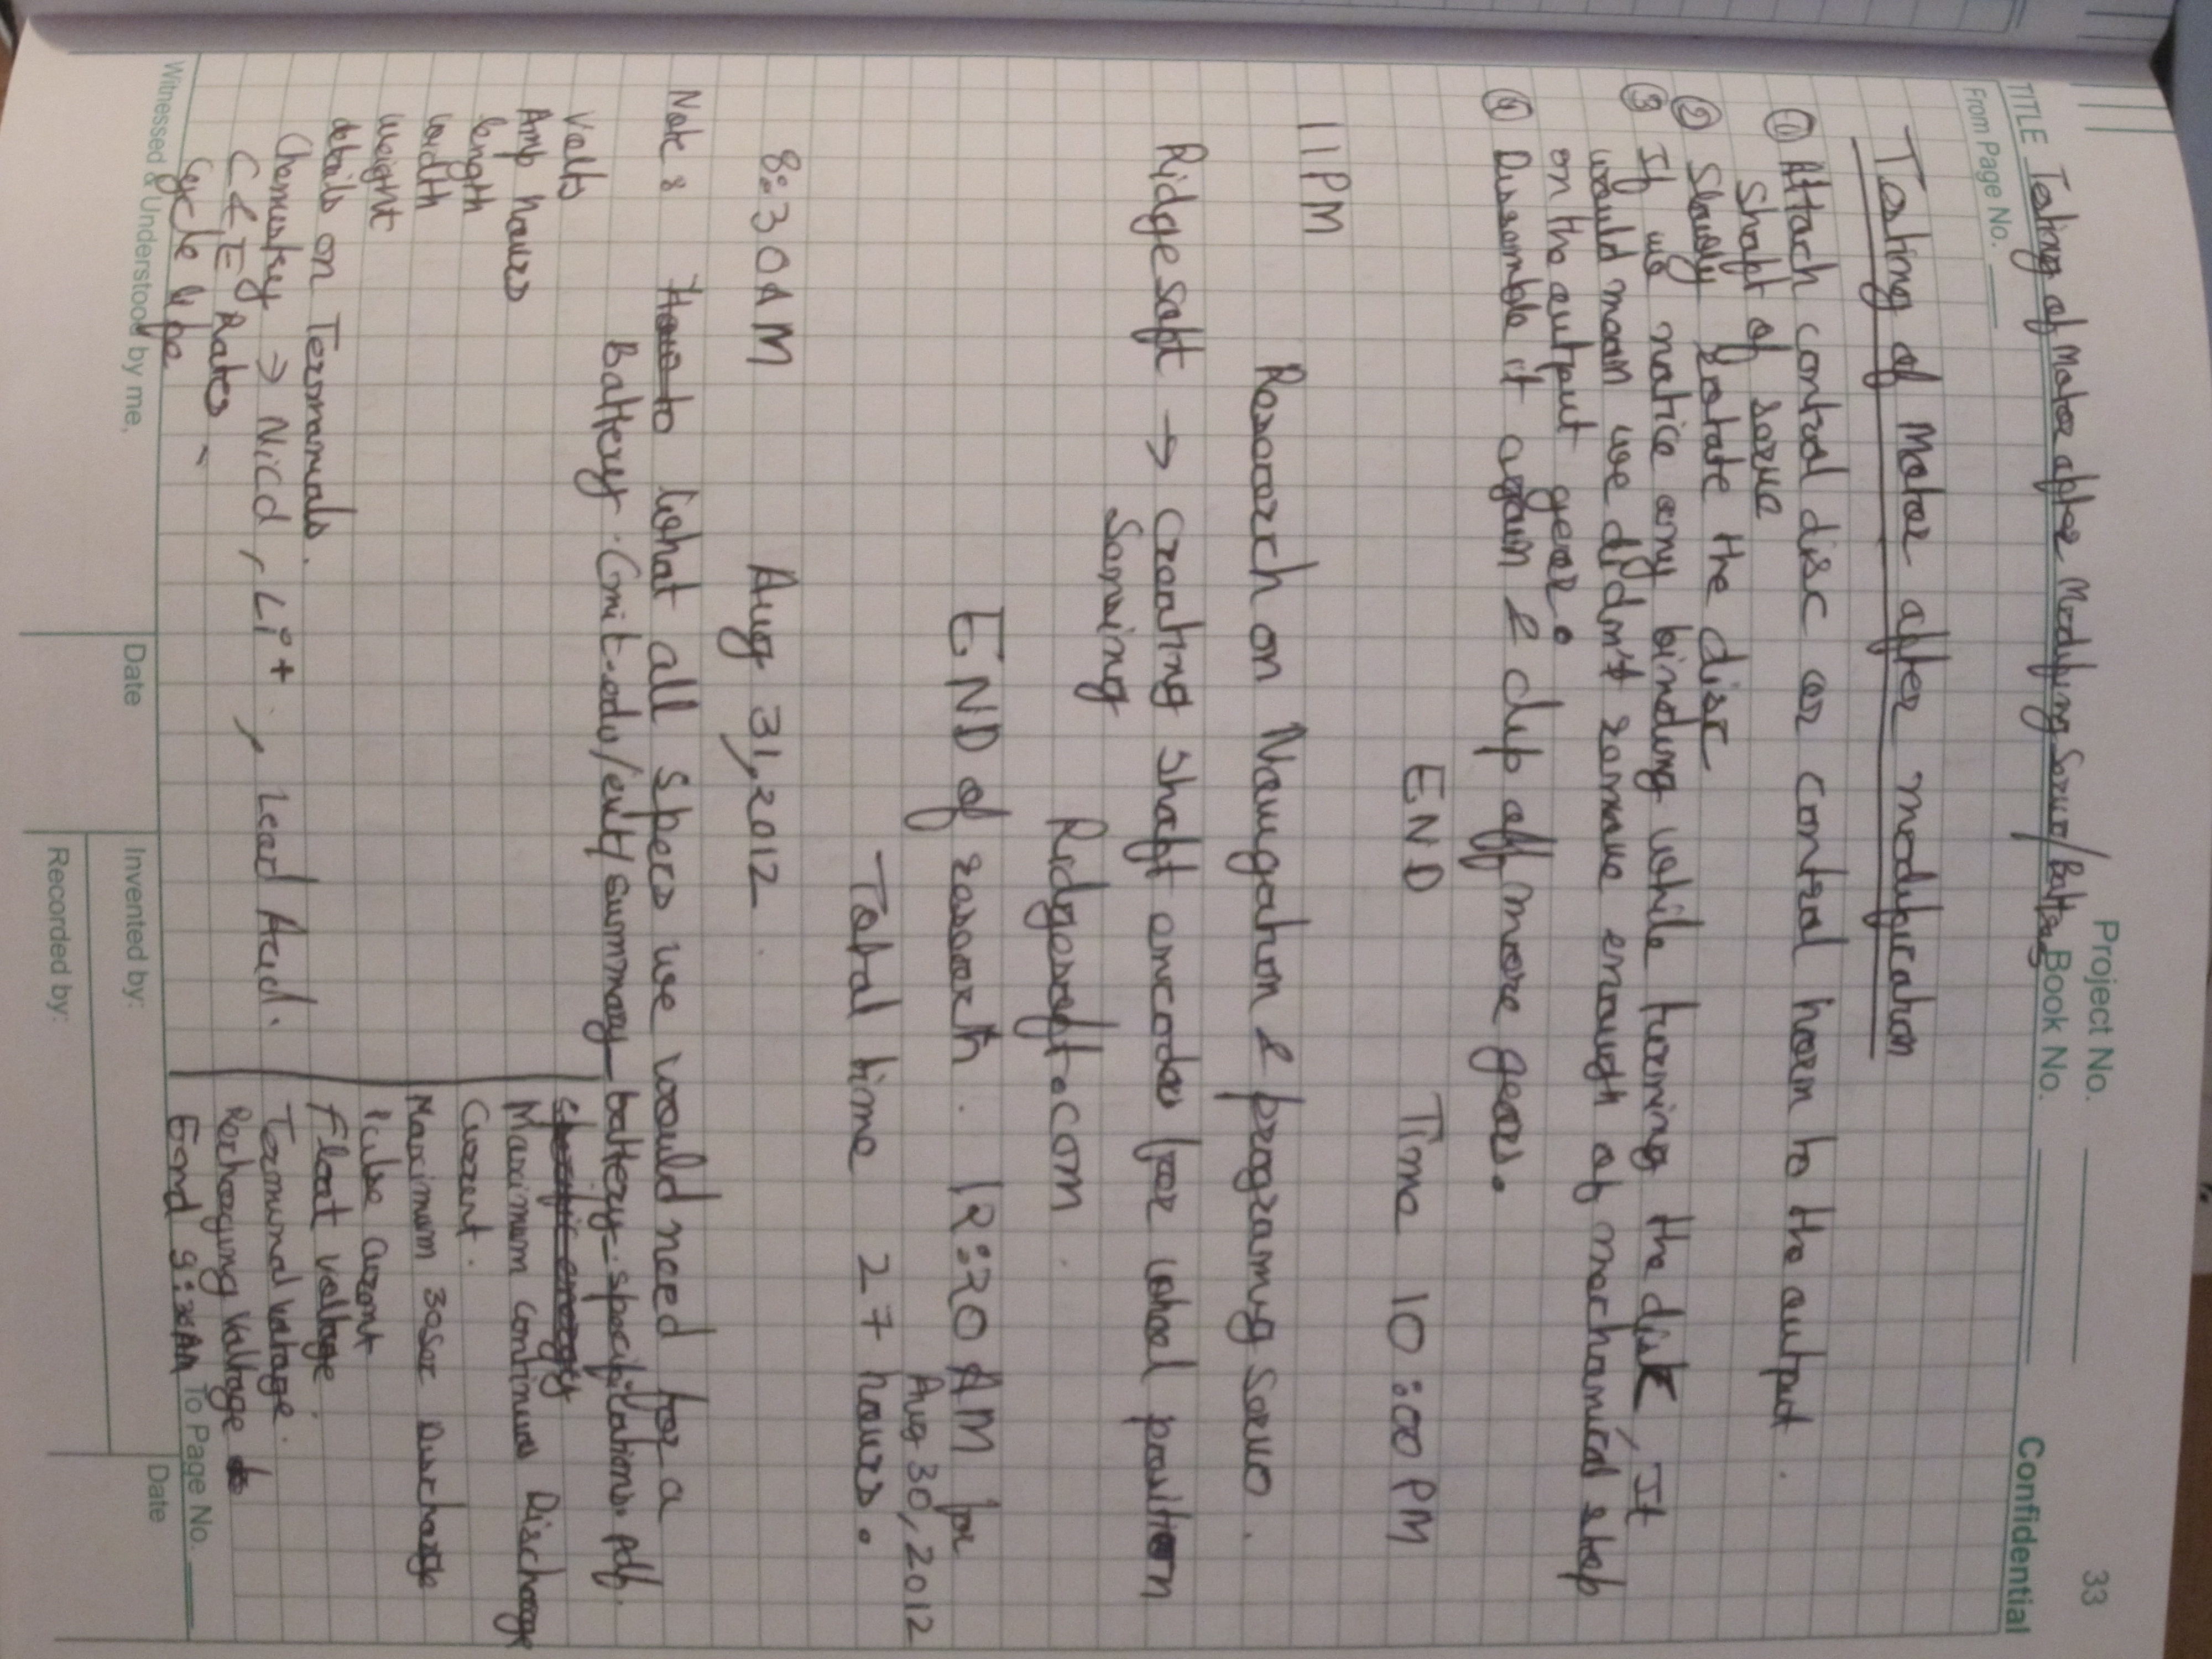 33
Project No.
Confidential
TITLE Testing of Motor after Modifying Servo/Battery Book No.
From Page No.
Testing of Motor after modification
① Attach control disc or control horn to the output
shaft of servo
② Slowly rotate the disc
③ If we notice any binding while turning the disk, It
would mean we didn't remove enough of mechanical stop
on the output gear.
④ Dissamble it again & clip off more gears.
END Time 10:00 PM
11 PM
Research on Navigation & programing servo.
Ridgesoft → Creating shaft encoder for wheel position
Sensing
Ridgesoft.com
END of research. 12:30 AM for
Aug 30, 2012
Total time 27 hours.
8:30AM Aug 31, 2012.
Note: How to What all specs we would need for a
Battery. (mit.edu/evt/summary_battery_specifications.pdf.
Volts
Amp hours
length
width
weight
details on Terminals.
Chemistry → Nicd, Li+, Lead Acid.
C & E Rates
Cycle life
Specific energy
Maximum continuous Discharge
Current.
Maximum 30sec Discharge
Pulse current
Float voltage.
Terminal voltage.
Recharging Voltage
End 9:30AM To Page No.
Witnessed & Understood by me,
Date
Invented by:
Date
Recorded by: